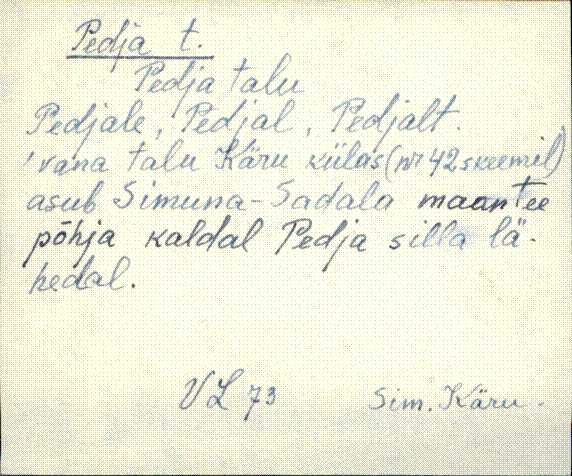 Pedja t.
Pedja talu
Pedjale, Pedjal, Pedjalt.
'vana talu Käru külas (nr 42 skeemil)
asub Simuna-Sadala maantee
põhja kaldal Pedja silla lä-
hedal.
VL 73 Sim. Käru.